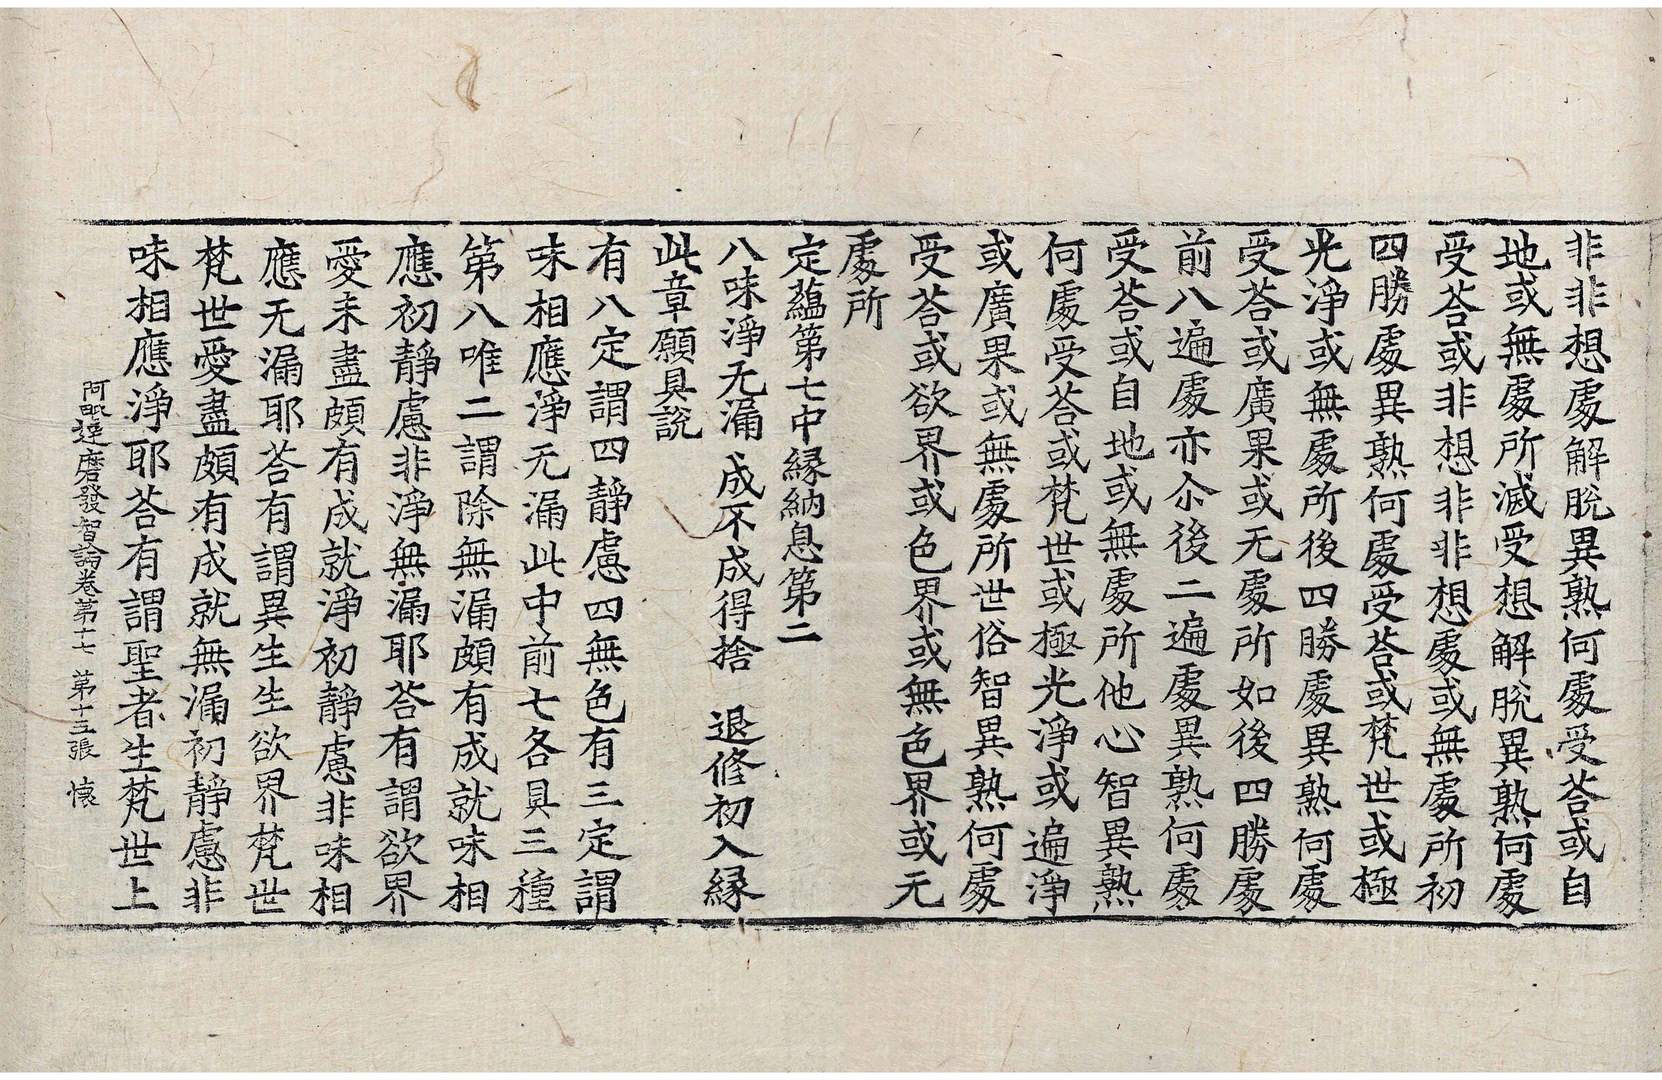 非非想處解脫異熟何處受荅或自
地或無處所滅受想解脫異熟何處
受荅或非想非非想處或無處所初
四勝處異熟何處受荅或梵世或極
光淨或無處所後四勝處異熟何處
受荅或廣果或无處所如後四勝處
前八遍處亦尒後二遍處異熟何處
受荅或自地或無處所他心智異熟
何處受荅或梵世或極光淨或遍淨
或廣果或無處所世俗智異熟何處
受荅或欲界或色界或無色界或无
處所
定蘊第七中緣納息第二
八味淨无漏 成不成得捨 退修初入緣
此章願具説
有八定謂四靜慮四無色有三定謂
味相應淨无漏此中前七各具三種
第八唯二謂除無漏頗有成就味相
應初靜慮非淨無漏耶荅有謂欲界
愛未盡頗有成就淨初靜慮非味相
應无漏耶荅有謂異生生欲界梵世
梵世愛盡頗有成就無漏初靜慮非
味相應淨耶荅有謂聖者生梵世上
阿毗達磨發智論卷苐十七 第十五張 懷